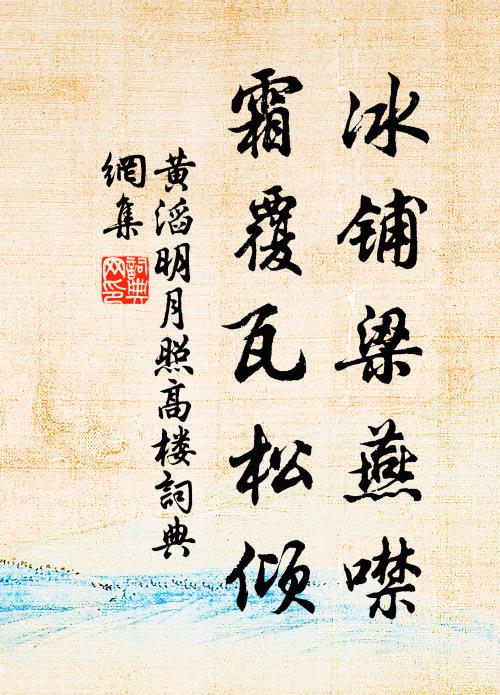 冰铺梁燕噤
霜覆瓦松倾
黄滔明月照高楼詞典
網集
詞典
网印